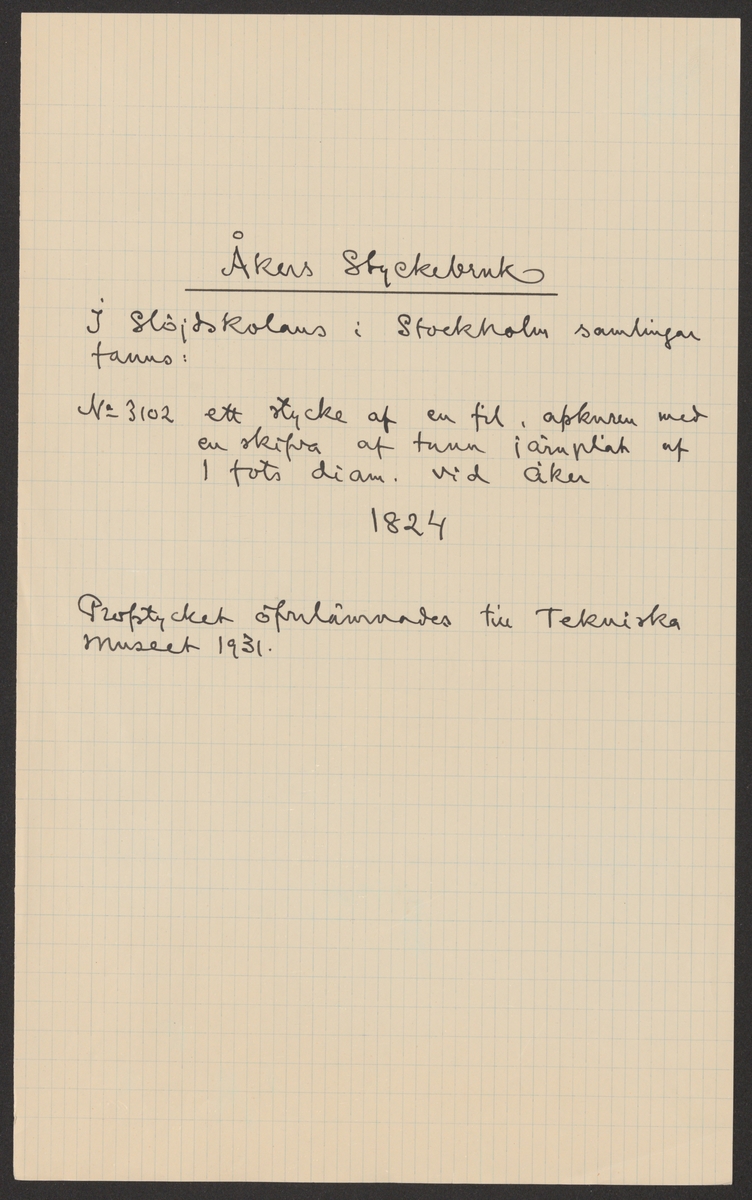 Åkers Styckebruk
I Slöjdskolans i Stockholm samlingar
fanns:
No 3102 ett stycke af en fil, afskuren med
en skifva af tunn järnplåt af
1 fots diam. vid Åker
1824
Profstycket öfverlämnades till Tekniska
Museet 1931.